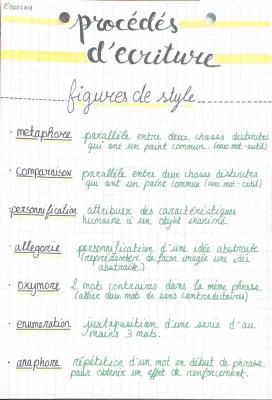 Francais
procédés
d'ecriture
figures de style
· metaphore parallèle entre deux choses distinctes
qui ont un point commun. (sans mot-outil)
· comparaison parallèle entre deux choses distinctes
qui ont un point commun (avec mot-outil)
· personnification attribuer des caractéristiques
humaine à un objet inanimé.
· allegorie personnification d'une idée abstraite
(représenter de façon imagée une idée
abstraite.)
· oxymore 2 mots contraires dans la même phrase
(allier deux mots de sens contradictoires)
· enumeration juxtaposition d'une serie d'au
moins 3 mots.
· anaphore répétition d'un mot en début de phrase
pour obtenir un effet de renforcement.